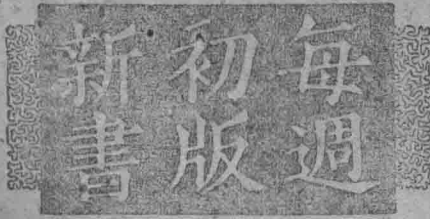 每週
初版
新書